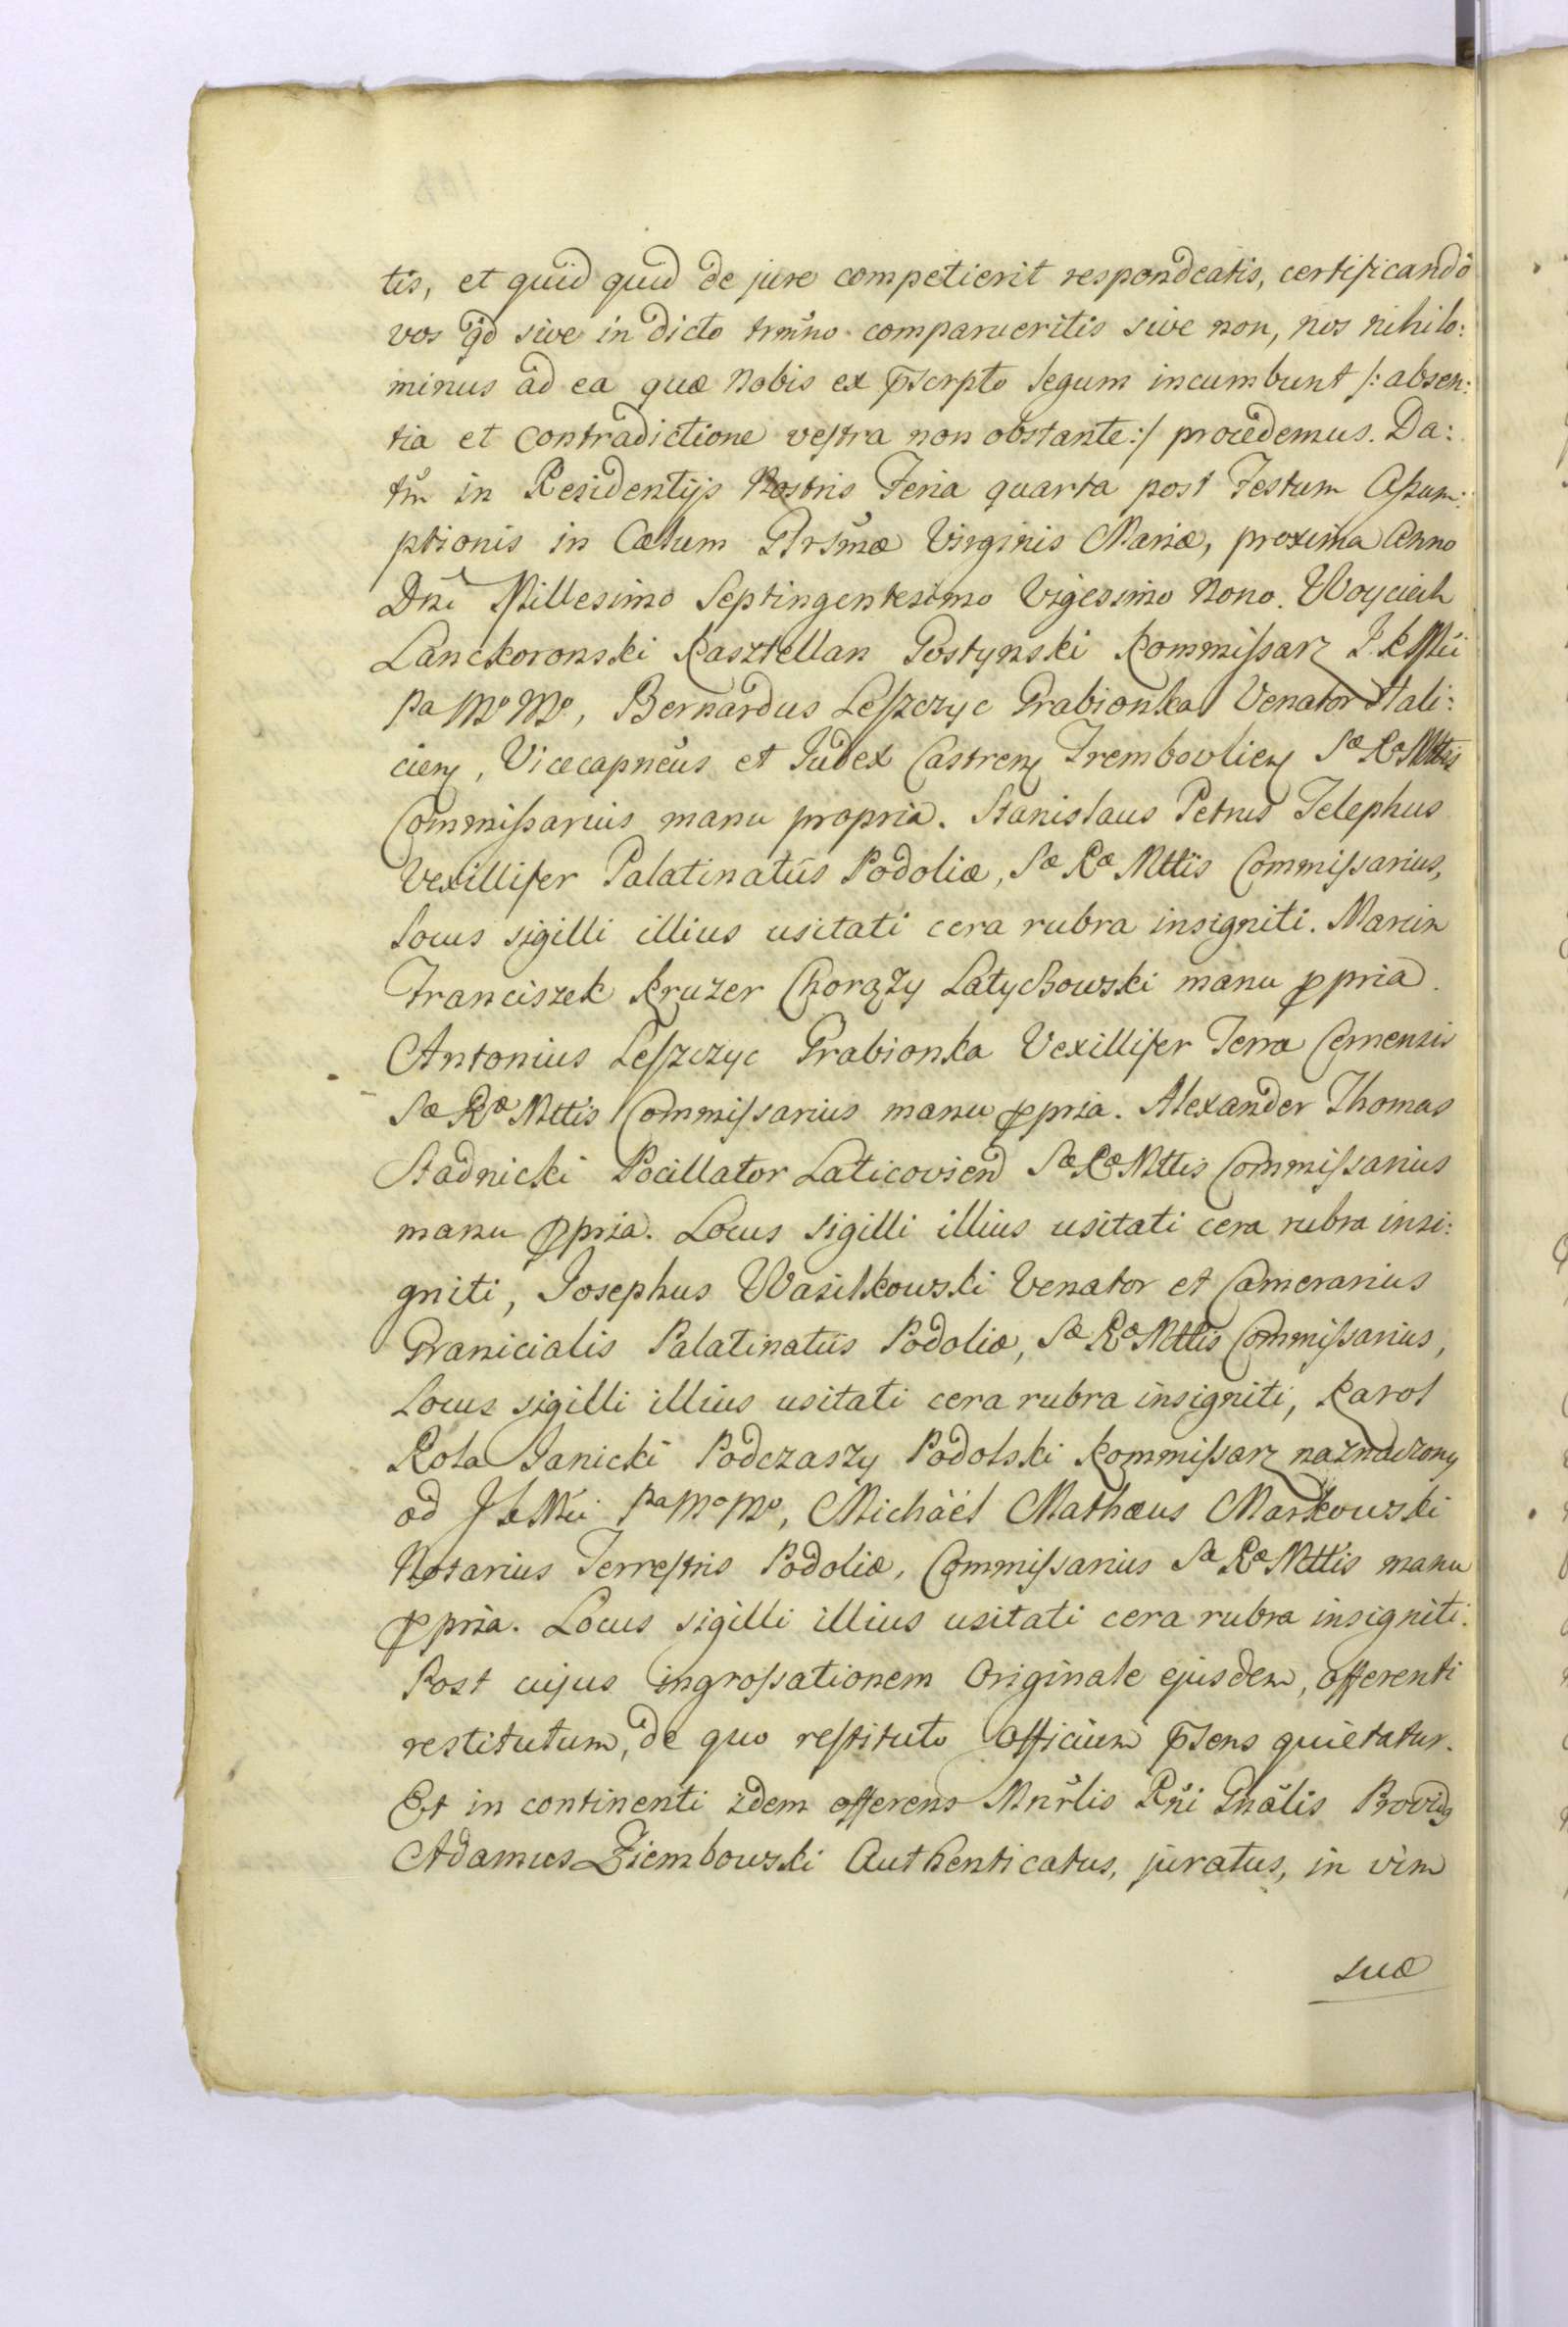 tis, et quid quid de jure competierit respondeatis, certificando
vos qd sive in dicto trmno comparueritis sive non, nos nihilo:
minus ad ea quæ Nobis ex pscrpto legum incumbunt /: absen:
tia et contradictione vestra non obstante :/ procedemus. Da:
tm in Residentijs Nostris Feria quarta post Festum Assum:
ptionis in Cælum Virginis Mariæ, proxima Anno
Dni Millesimo Septingentesimo Vigesimo Nono. Woyciech
Lanckoronski Kasztellan Gostynski Kommissarz J. K Mci
Pa Mo Mo, Bernardus Leszczyc Grabionka Venator Hali:
cien, Vicecapneus et Judex Castren Trembovlien Sæ Ræ Mttis
Commissarius manu propria. Stanislaus Petrus Telephus
Vexillifer Palatinatus Podoliæ, Sæ Ræ Mttis Commissarius,
Locus sigilli illius usitati cera rubra insigniti. Marcin
Franciszek Kruzer Chorąży Latychowski manu ppria.
Antonius Leszczyc Grabionka Vexillifer Terræ Cernensis
Sæ Ræ Mttis Commissarius manu ppria. Alexander Thomas
Stadnicki Pocillator Laticovien Sæ Ræ Mttis Commissarius
manu ppria. Locus sigilli illius usitati cera rubra insi:
gniti, Josephus Wasilkowski Venator et Camerarius
Granicialis Palatinatus Podoliæ, Sæ Ræ Mttis Commissarius,
Locus sigilli illius usitati cera rubra insigniti, Karol
Rola Janicki Podczaszy Podolski Kommissarz naznaczony
od J K Mci Pa Mo Mo, Michäel Mathæus Markowski
Notarius Terrestris Podoliæ, Commissarius Sæ Ræ Mttis manu
ppria. Locus sigilli illius usitati cera rubra insigniti.
Post cujus ingrossationem Originale ejusdem, offerenti
restitutum, de quo restituto Officium psens quietatur.
Et in continenti idem offerens Mnrlis Rni Gnalis Provid
Adamus Ziembowski Authenticatus, juratus, in vim
suæ